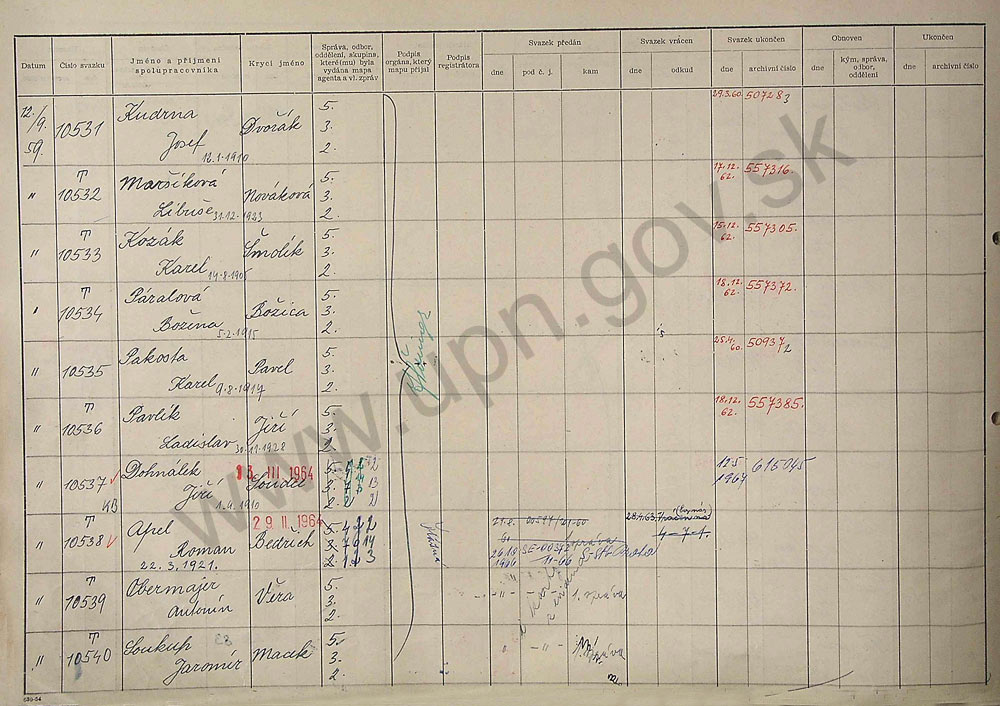 Datum
Číslo svazku
Jméno a příjmení
spolupracovníka
Krycí jméno
Správa, odbor,
oddělení, skupina,
které(mu) byla
vydána mapa
agenta a vl. zpráv
Podpis
orgána, který
mapu přijal
Podpis
registrátora
Svazek předán
dne
pod č. j.
kam
Svazek vrácen
dne
odkud
Svazek ukončen
dne
archivní číslo
Obnoven
dne
kým, správa,
odbor,
oddělení
Ukončen
dne
archivní číslo
12.
/9.
59.
10531
Kudrna
Josef
Dvořák
5.
3.
2.
29.3.60.
507283
"
T
10532
Maršíková
Libuše 31.12.1923
Nováková
5.
3.
2.
17.12.
62.
557316.
"
T
10533
Kozák
Karel
Šmolík
5.
3.
2.
15.12.
62.
557305.
"
T
10534
Páralová
Božena
5.2.1915
Božica
5.
3.
2.
18.12.
62.
557372.
"
10535
Pakosta
Karel 9.8.1917
Pavel
5.
3.
2.
25.4.
60.
509372
"
T
10536
Pavlík
Ladislav 30.11.1928
Jiří
5.
3.
2.
18.12.
62.
557385.
"
10537
KB
Dohnálek
Jiří
13 III 1964
Souděk
5.
3.
2.
12.5
1964
"
10538
Apel
Roman
22.3.1921.
29 II 1964
Bedřich
5. 4 2 2
28.4.63.
4-7-1.
26.10
1966
"
10539
Obermajer
Antonín
Věra
5.
3.
2.
- " - - 1. správa
"
T
10540
Soukup
Jaromír
Macek
5.
3.
2.
- " -
správa
www.upn.gov.sk